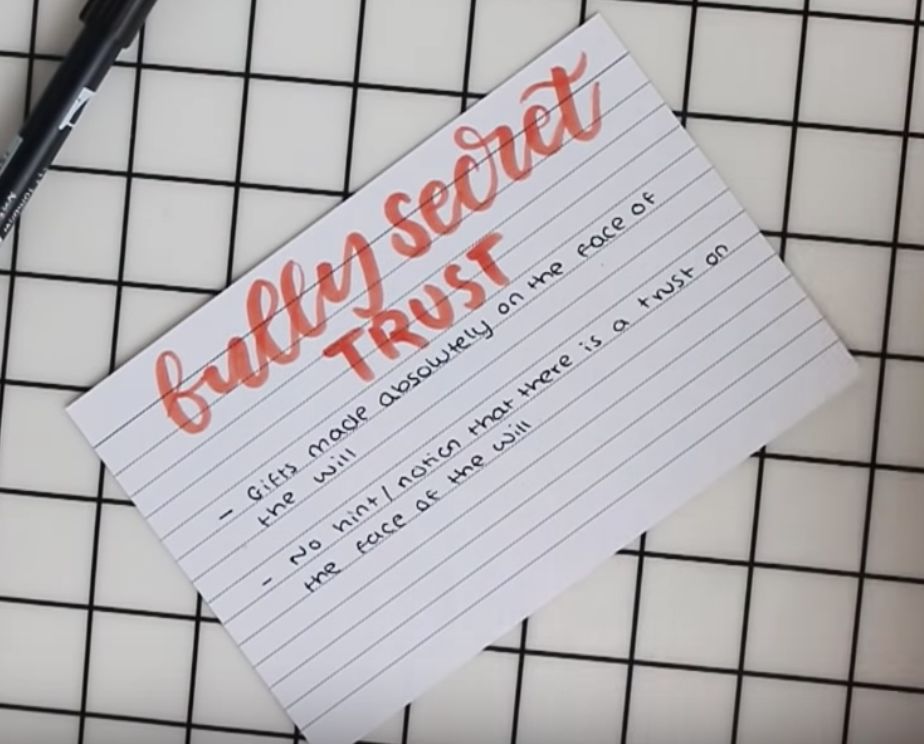 fully secret
TRUST
- Gifts made absolutely on the face of
the will
- No hint/notion that there is a trust on
the face of the will